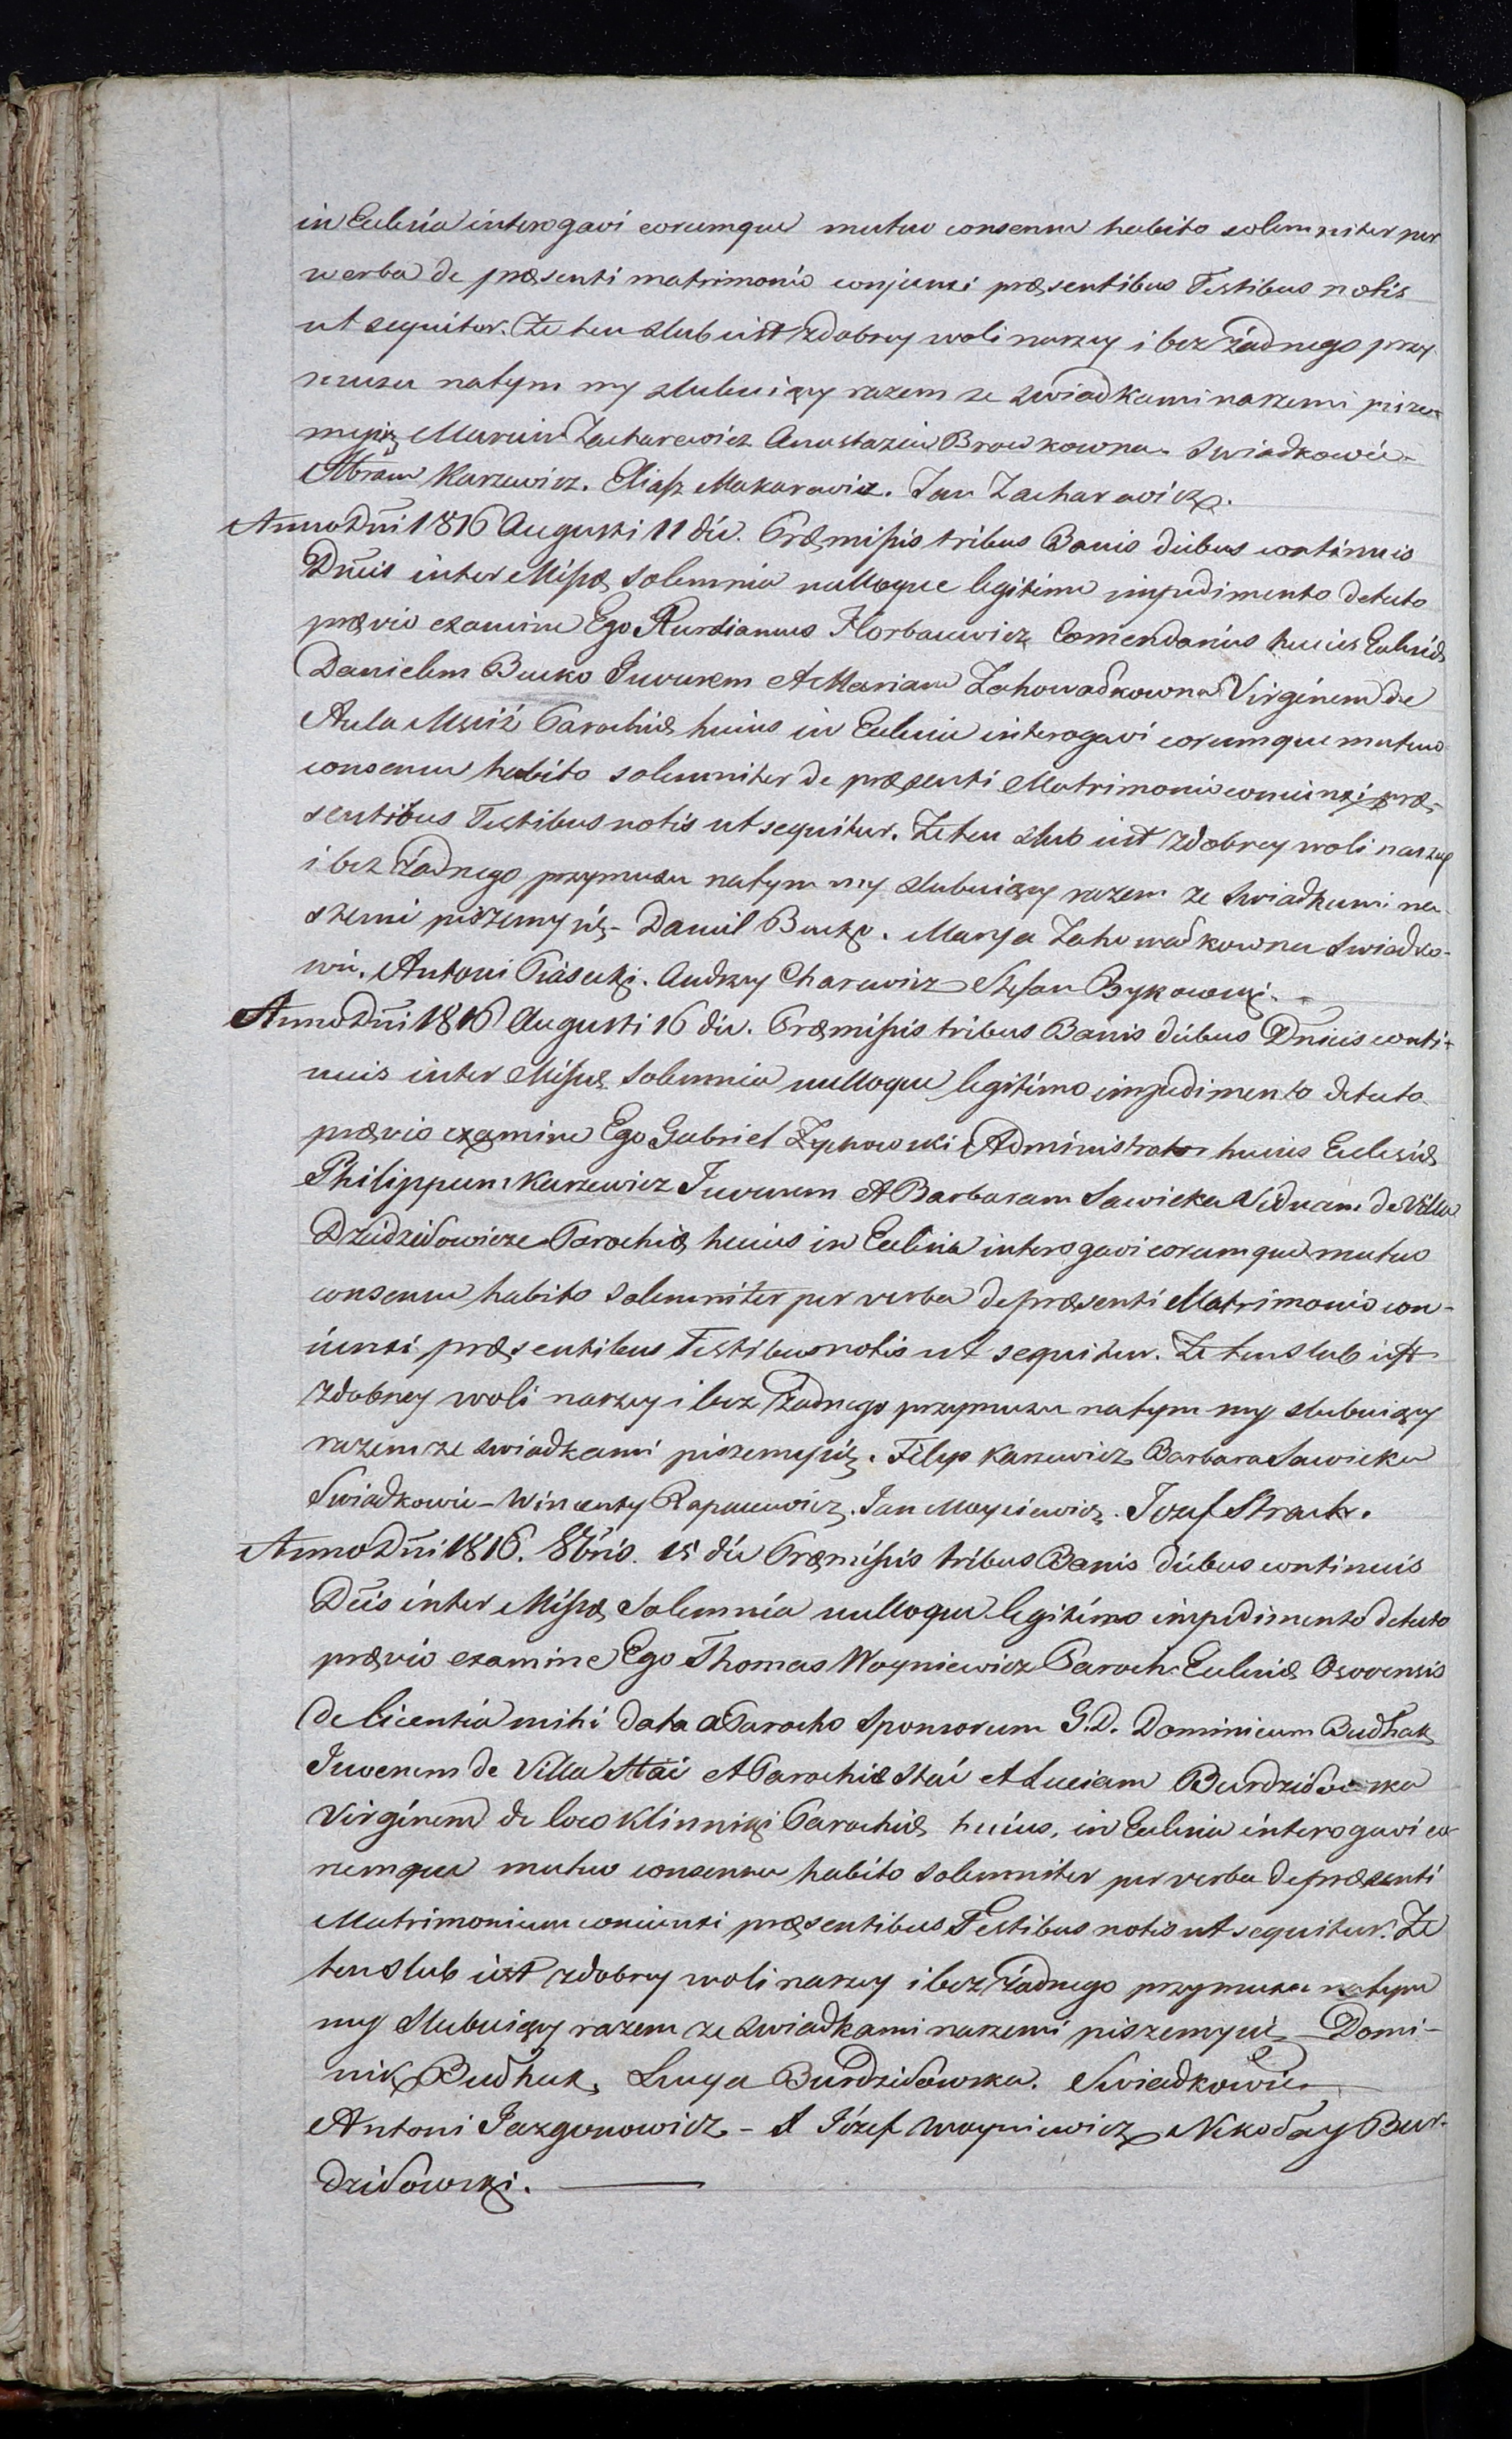 in Ecclesia interogavi eorumque mutuo consensu habito solemniter per
werba de præsenti matrimonio conjunxi præsentibus Testibus notis
ut sequitur. Że ten slub iest zdobrey woli naszey i bez żadnego przy-
muszu natym my slubuięcy razem ze swiadkami naszemi pisze-
mysię Marcin Zacharewicz Anastazia Browkowna. Swiadkowie-
Abram Karzewicz. Eliasz Makarewicz. Jan Zacharewicz.
Anno Dni 1816 Augusti 11 die. Præmissis tribus Banis diebus continuis
Dnicis inter Missæ solemnia nulloque legitimo impedimento detecto
prævio examine Ego Horbacewicz Comendarius huius Ecclesiæ
Danielem Bucko Juvenem et Mariam Zahowadkowna Virginem de
Aula Mściż Parochiæ huius in Ecclesia interogavi eorumque mutuo
consensu habito solemniter de præsenti Matrimonio coniunxi præ-
sentibus Testibus notis ut sequitur. Że ten slub iest zdobrey woli naszey
i bez żadnego przymusu natym my slubuięcy razem ze swiadkami na-
szemi piszemy się- Daniel Bucko. Marya Zahowadkowna Swiadko-
wie. Antoni Piasecki. Andrzey Charewicz Stefan Bykowski.
Anno Dni 1816 Augusti 16 die. Præmissis tribus Banis diebus Dnicis conti-
nuis inter Missæ Solemnia nulloque legitimo impedimento detecto
prævio examine Ego Gabriel Zyzkowski Administrator huius Ecclesiæ
Philippum Karzewicz Juvenem et Barbaram Sawicka Viduam de Villa
Dziedziłowicze Parochiæ huius in Ecclesia interogavi eorumque mutuo
consensu habito Solemniter per verba de præsenti Matrimonio con-
iunxi præsentibus Testibus notis ut sequitur. Że ten slub iest
zdobrey woli naszey i bez żadnego przymuzu natym my slubuięcy
razem ze swiadkami piszemysię. Filip Karzewicz Barbara Sawicka
Swiadkowie- Wincenty Rapacewicz. Jan Moysiewicz. Jozef Strach.
Anno Dni 1816. 8bris. 15 die Præmissis tribus Banis diebus continuis
Dcis inter Missæ Solemnia nulloque legitimo impedimento detecto
prævio examine Ego Thomas Woyniewicz Paroch. Ecclesiæ Osovensis
de licentia mihi data a Parocho Sponsorum G.D. Dominicum Budhak
Juvenem de Villa Stai et Parochiæ Stai et Luciam Burdziłowska
Virginem de loco Klinniki Parochiæ huius, in Ecclesia interogavi eo-
rumque mutuo consensu habito Solemniter per verba de præsenti
Matrimonium coniunxi præsentibus Testibus notis ut sequitur. Że
ten slub iest zdobrey woli naszey i bez żadnego przymusu natym
my slubuięcy razem ze swiadkami naszemi piszemysię - Domi-
nik Budhak. Lucya Burdziłowska. Swiadkowie
Antoni Jazgunowicz. - A Józef Woyniewicz Nikołay Bur-
dziłowski.